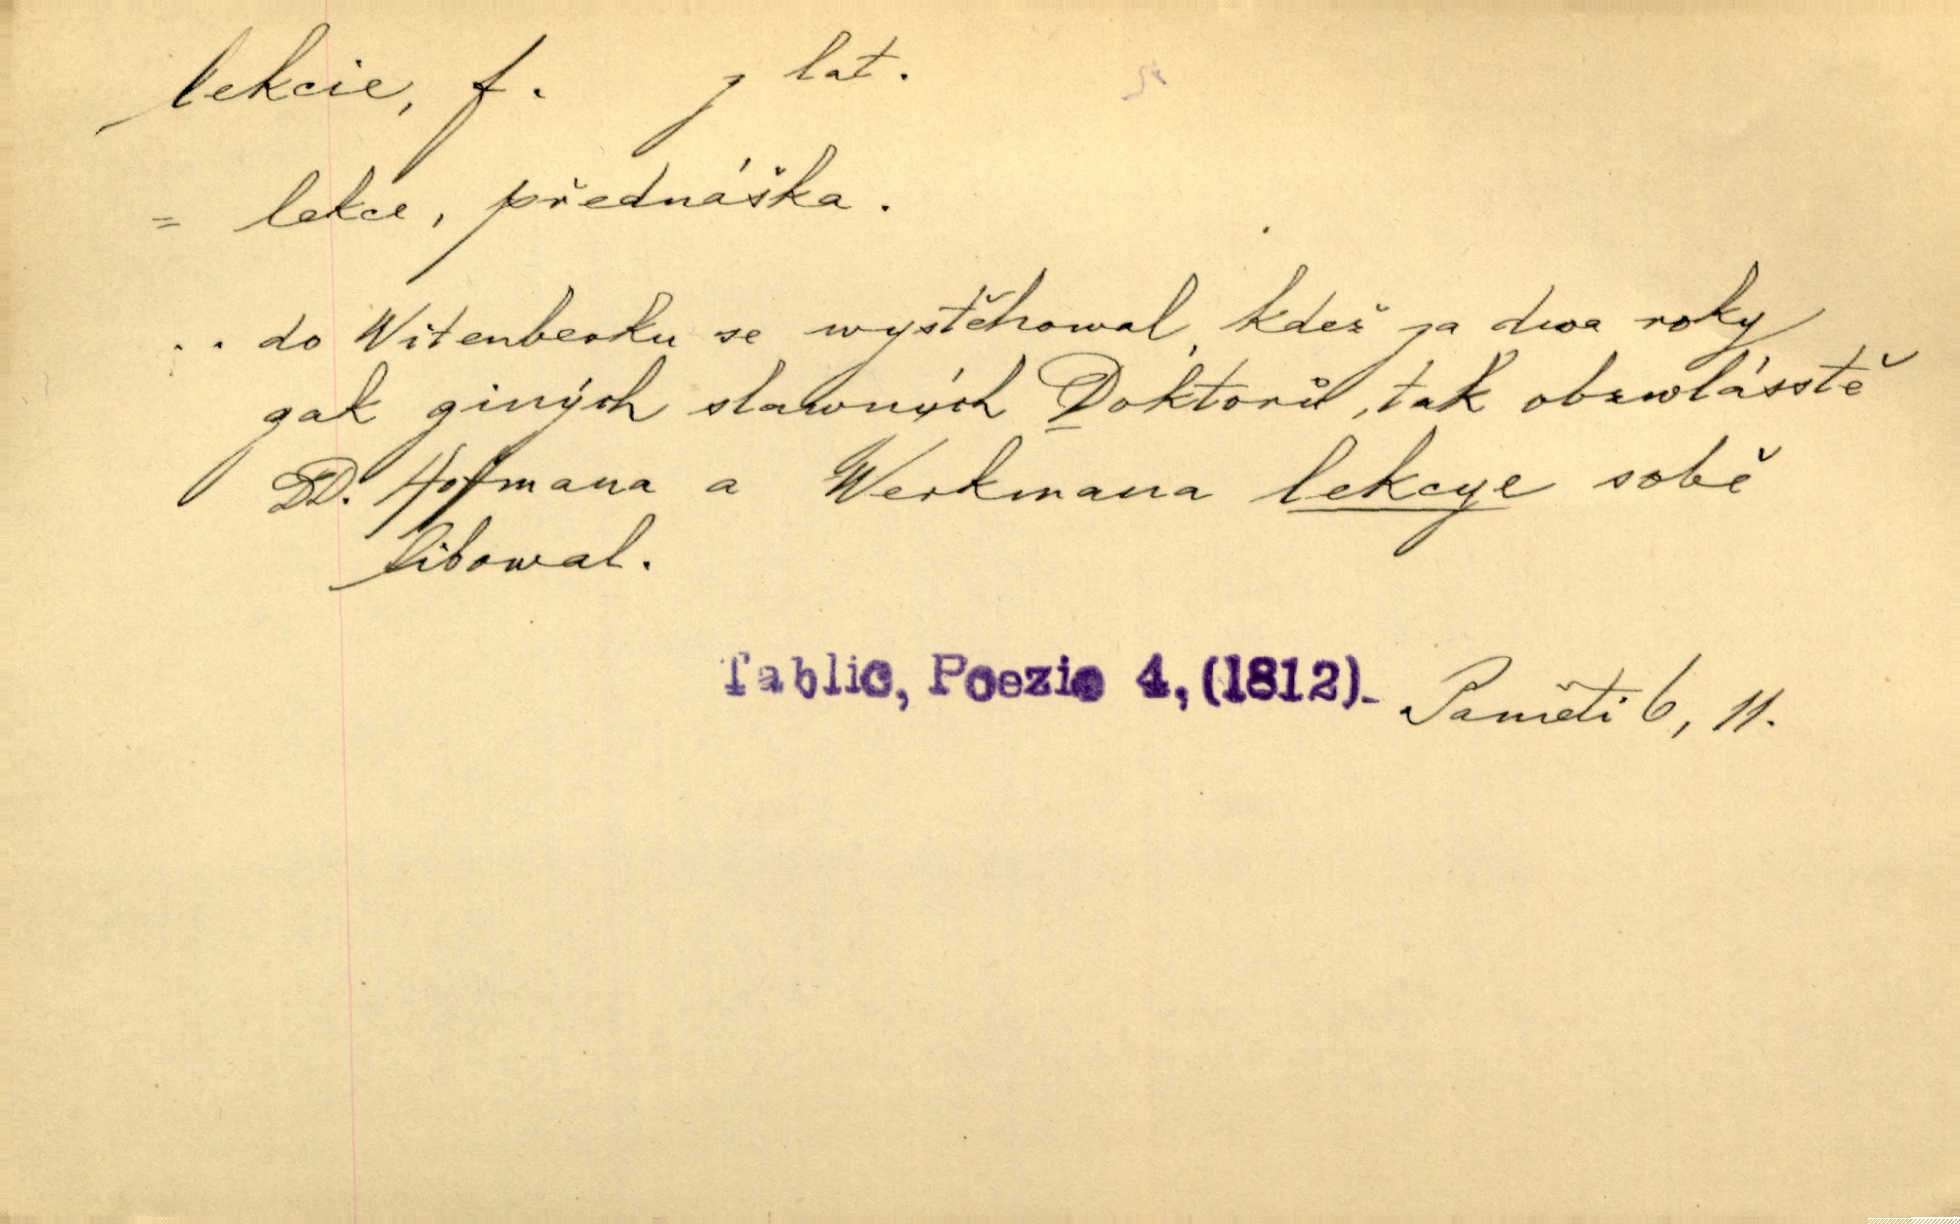 lekcie, f. z lat.
= lekce, přednáška.
.. do Witenberku se wystěhowal, kdež za dwa roky
gak giných slawných Doktorů, tak obzwlásstě
DD. Hofmana a Werkmana lekcye sobě
libowal.
Tablic, Poezie 4, (1812). Paměti 6, 11.